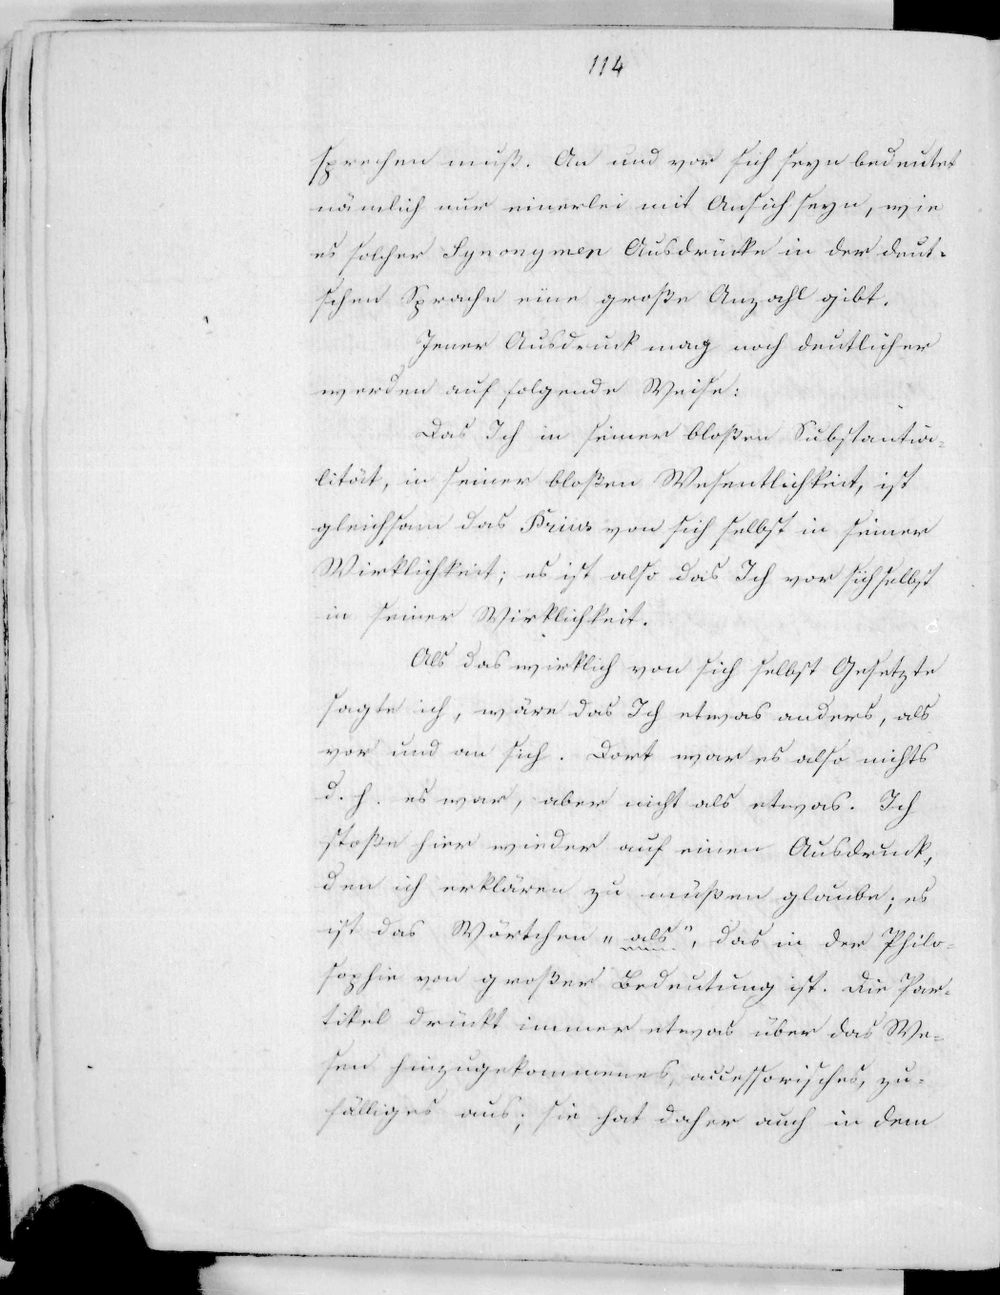 114
sprechen muß. An und vor sich seyn bedeutet
nämlich nur einerlei mit Ansichseyn, wie
es solcher Synonymen Ausdrücke in der deut-
schen Sprache eine große Anzahl gibt.
Jener Ausdruck mag noch deutlicher
werden auf folgende Weise:
Das Ich in seiner bloßen Substantia-
lität, in seiner bloßen Wesentlichkeit, ist
gleichsam das Prius von sich selbst in seiner
Wirklichkeit; es ist also das Ich vor sich selbst
in seiner Wirklichkeit.
Als das wirklich von sich selbst Gesetzte
sagte ich, wäre das Ich etwas anders, als
vor und an sich. Dort war es also nichts
d. h. es war, aber nicht als etwas. Ich
stoße hier wieder auf einen Ausdruck,
den ich erklären zu müßen glaube; es
ist das Wörtchen „als", das in der Philo-
sophie von großer Bedeutung ist. Die Par-
tikel drückt immer etwas über das We-
sen hinzugekommenes, accessorisches, zu-
fälliges aus; sie hat daher auch in dem